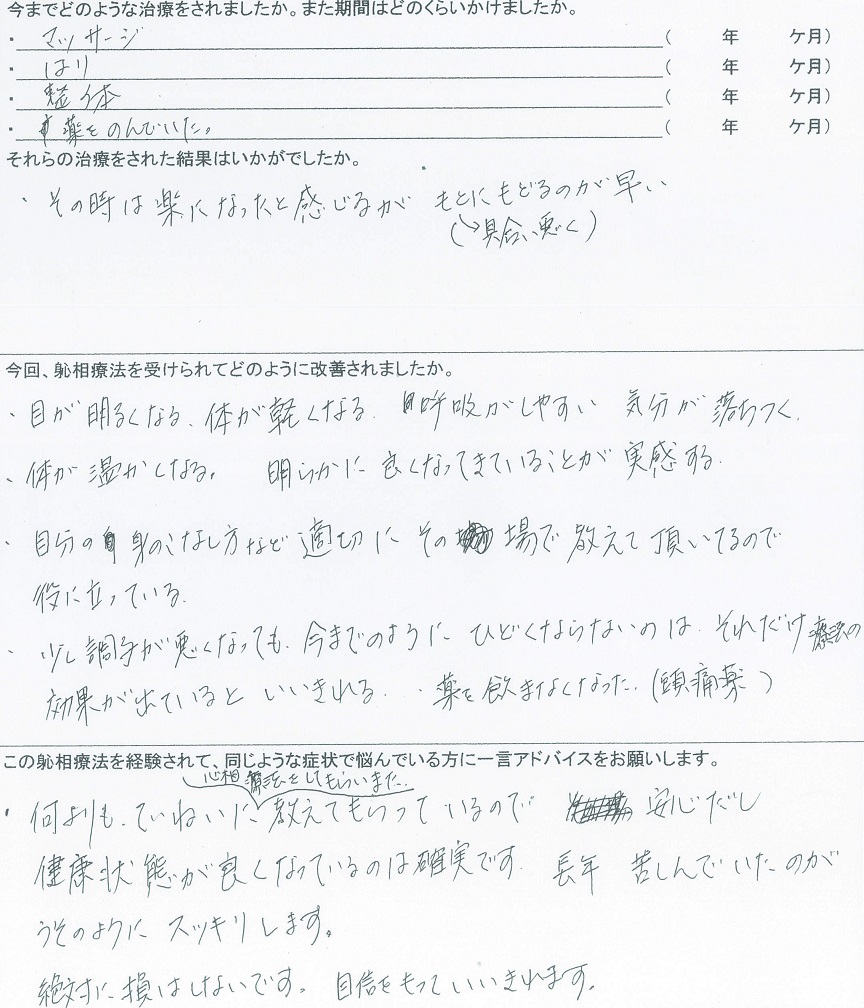 今までどのような治療をされましたか。また期間はどのくらいかけましたか。
・マッサージ（　年　ケ月）
・はり（　年　ケ月）
・整体（　年　ケ月）
・薬をのんでいた。（　年　ケ月）
それらの治療をされた結果はいかがでしたか。
・その時は楽になったと感じるが もとにもどるのが早い
(→具合い悪く)
今回、躰相療法を受けられてどのように改善されましたか。
・目が明るくなる、体が軽くなる、呼吸がしやすい 気分が落ちつく、
・体が温かくなる。 明らかに良くなってきていることが実感する。
・自分の身のこなし方など適切にその場で教えて頂いてるので
役に立っている。
・少し調子が悪くなっても、今までのように ひどくならないのは、それだけ療法の
効果が出ていると いいきれる。・薬を飲まなくなった。(頭痛薬)
この躰相療法を経験されて、同じような症状で悩んでいる方に一言アドバイスをお願いします。
心相療法をしてもらいまた、
・何よりも、ていねいに教えてもらっているので 安心だし
健康状態が良くなっているのは確実です。長年 苦しんでいたのが
うそのように スッキリします。
絶対に損はしないです。自信をもっていいきれます。